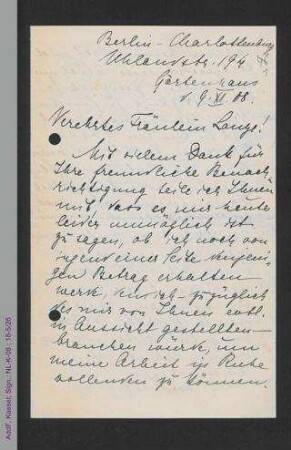 Berlin-Charlottenburg
Uhlandstr. 194
Gartenhaus
d. 9. XI. 08.
Verehrtes Fräulein Lange!
Mit vielem Dank für
Ihre freundliche Benach-
richtigung teile ich Ihnen
mit, dass es mir heute
leider unmöglich ist
zu sagen, ob ich noch von
irgend einer Seite denjeni-
gen Betrag erhalten
werde, den ich zuzüglich
des mir von Ihnen evtl.
in Aussicht gestellten
brauchen würde, um
meine Arbeit in Ruhe
vollenden zu können.
AddF, Kassel, Sign.: NL-K-08 ; 18-5/26